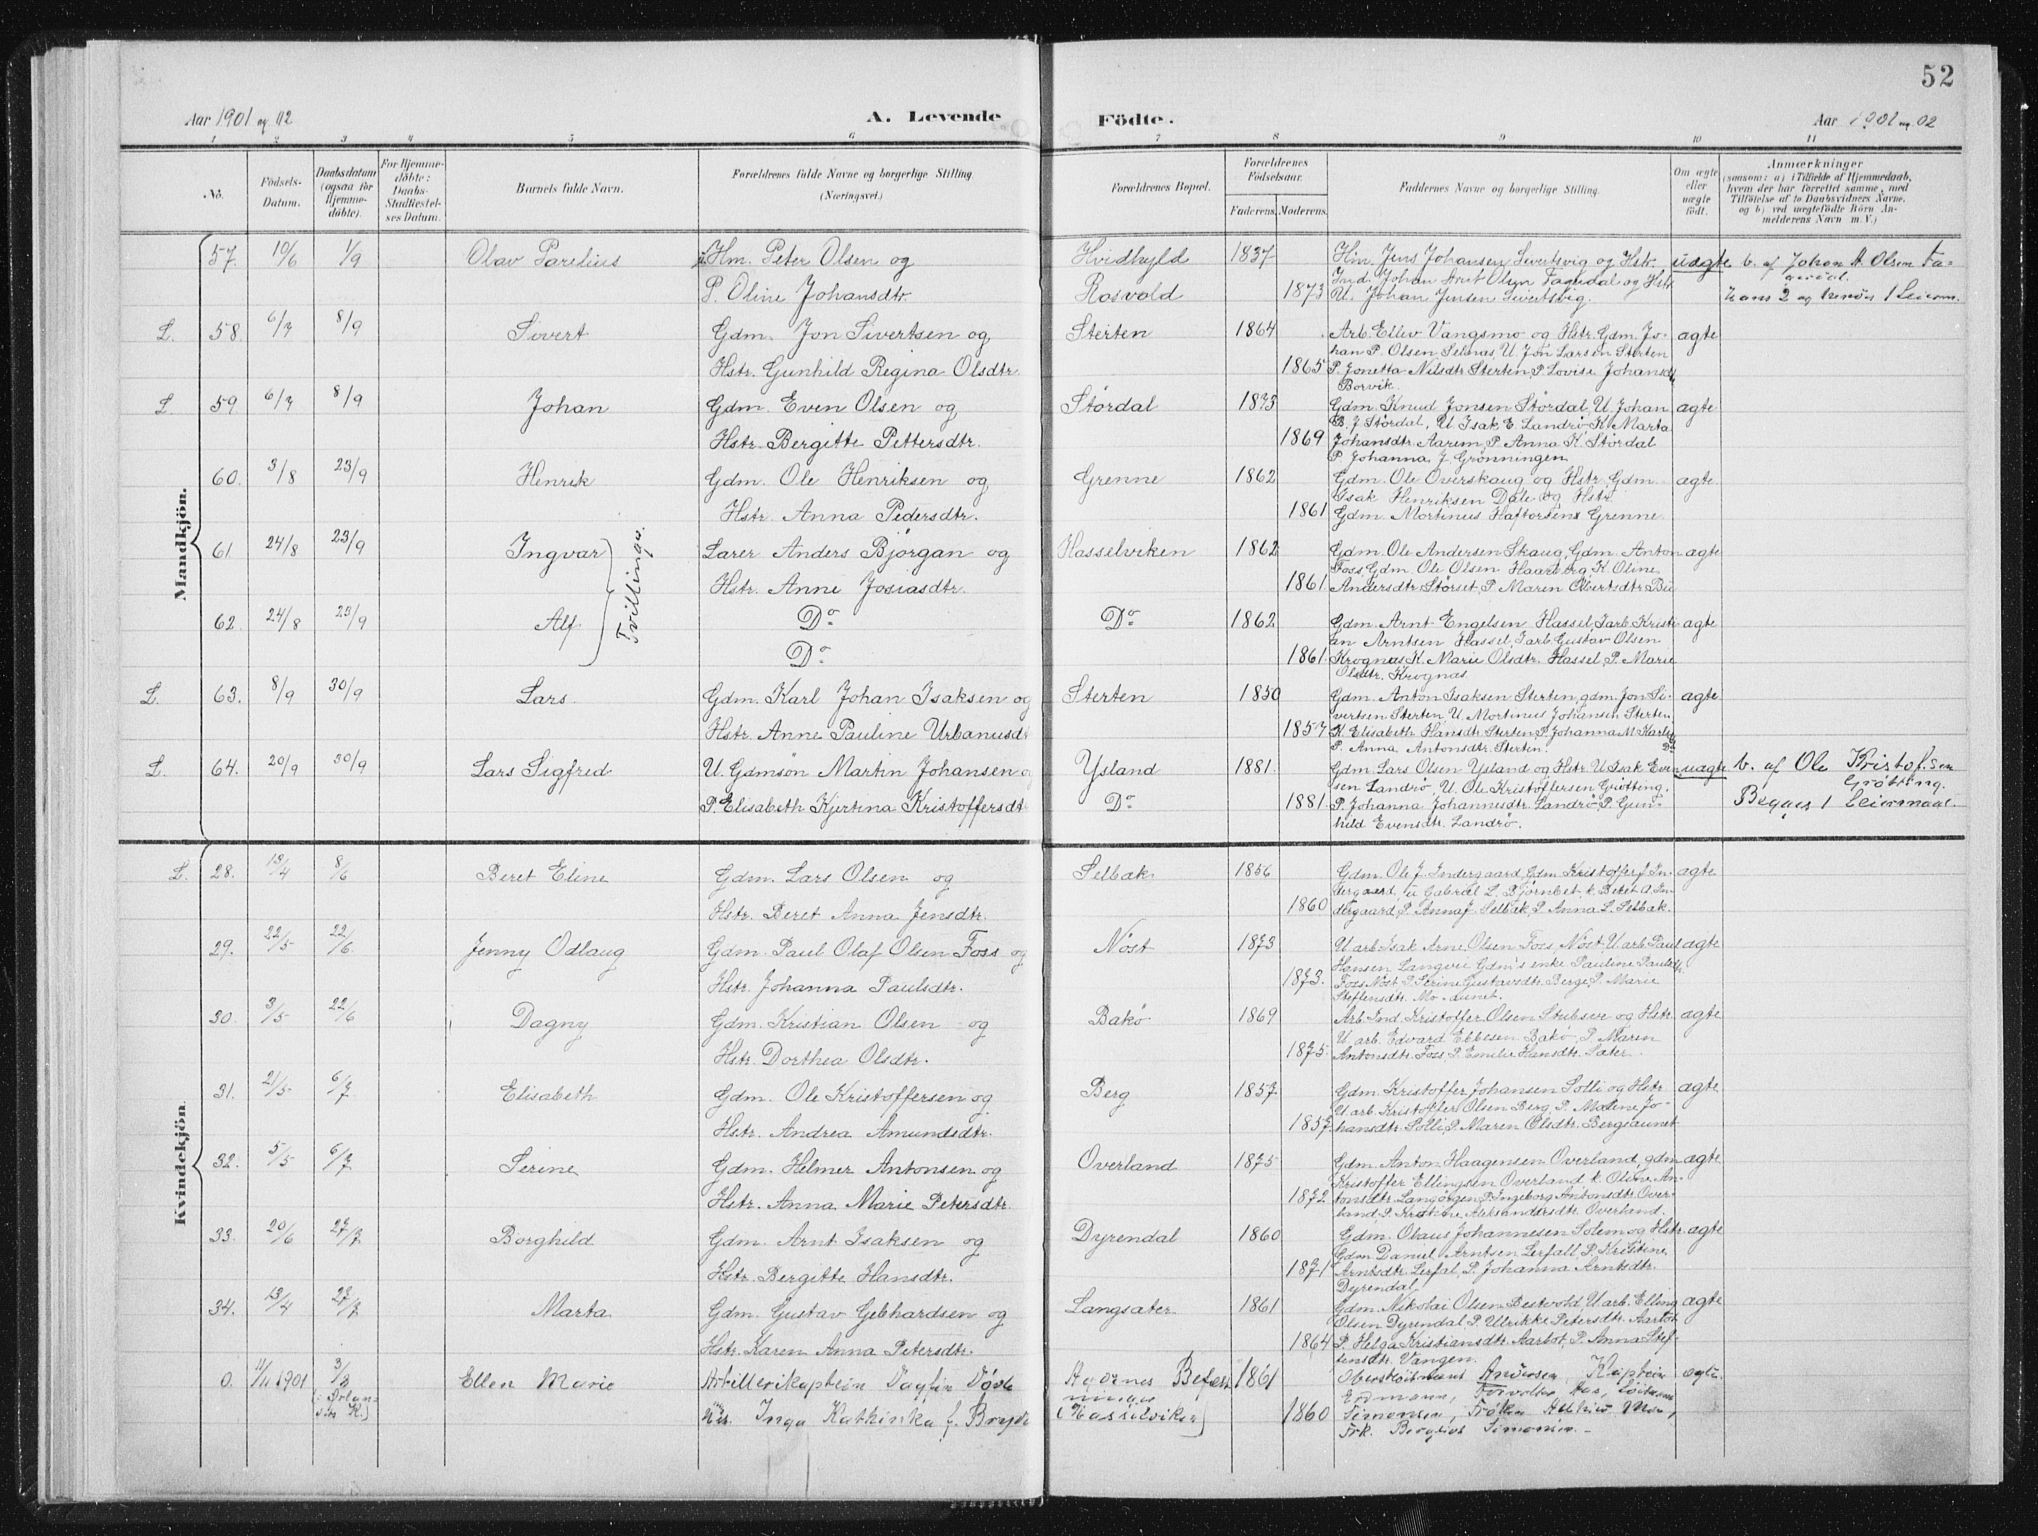 52
Aar 1901 og 02
A. Levende
Födte.
Aar 1901 og 02
1 2 3 4 5 6 7 8 9 10 11
No.
Födsels-Datum.
Daabsdatum (ogsaa for Hjemme-döbte).
For Hjemme-döbte: Daabs-Stadfæstelses Datum.
Barnets fulde Navn.
Forældrenes fulde Navne og borgerlige Stilling (Næringsvei.)
Forældrenes Bopæl.
Forældrenes Födselsaar.
Faderens. Moderens.
Faddernes Navne og borgerlige Stilling.
Om ægte eller uægte födt.
Anmærkninger
(saasom: a) i Tilfælde af Hjemmedaab, hvem der har forrettet samme, med Tilföielse af to Daabsvidners Navne. og b) ved uægtefödte Börn Anmelderens Navn m. V.)
Mandkjön.
57. 10/6 1/9 Olav Parelius Hm. Peter Olsen og Hvidhyld 1837 Hm. Jens Johansen Sivertsvig og Hstr. uægte b. af Johan A. Olsen Fa-
P. Oline Johansdtr. Rosvold 1873 U. Johan Jensen Sivertsvig.
L. 58. 6/7 8/9 Sivert Gdm. Jon Sivertsen og Sterten 1864 Arb. Ellev Vangsmo og Hstr. Gdm. Jo- ægte
han P. Olsen Selnas, U. Jon Larsen Sterten
Hstr. Gunhild Regina Olsdtr. 1865 P. Jonetta Nilsdtr. Sterten, P. Lovise Johansdtr
Borvik.
L. 59. 6/7 8/9 Johan Gdm. Even Olsen og Størdal 1873 Gdm. Knud Jonsen Størdal, U. Johan ægte
E. J. Størdal, U. Isak E. Landrø K. Marta
Hstr. Bergitte Pettersdtr. 1869 Johansdtr. Aarem, P. Anna K. Størdal
P. Johanna J. Grønningen
60. 3/8 23/9 Henrik Gdm. Ole Henriksen og Grenne 1862 Gdm. Ole Overskaug og Hstr. Gdm. ægte
Isak Henriksen Dale og Hstr.
Hstr. Anna Pedersdtr. 1861 Gdm. Mortinus Haftorsens Grenne
61 24/8 23/9 Ingvar Larer Anders Bjørgan og Hasselviken 1862 Gdm. Ole Andersen Skaug, Gdm. Anton ægte
Foss, Gdm. Ole Olsen Haarberg K. Oline
Tvillinger.
Hstr. Anne Josiasdtr. 1861 Andersdtr. Størset, P. Maren
62. 24/8 23/9 Alf Do Do 1862 Gdm. Arnt Engelsen Hassel, Iarb. Kristi- ægte
an Arntsen Hassel, Iarb. Gustav Olsen
Do 1861. Krognes K. Marie Olsdtr. Hassel, P. Marie
Olsdtr. Krognas
L. 63. 8/9 30/9 Lars Gdm. Karl Johan Isaksen og Sterten 1850 Gdm. Anton Isaksen Sterten, gdm. Jon Si- ægte
vertsen Sterten, U. Mortinus Johansen Sterten
Hstr. Anne Pauline Urbanusdt 1857 K. Elisabeth Hansdtr. Sterten, P. Johanna M. Karls
P. Anna Antonsdtr. Sterten.
L. 64. 20/9 30/9 Lars Sigfred U. Gdmsøn Martin Johansen og Ysland 1881. Gdm. Lars Olsen Ysland og Hstr. U. Isak Even- uægte b. af Ole Kristofsen
sen Landrø U. Ole Kristoffersen Grøtting. Grøtting.
P. Elisabeth Kjertina Kristoffersdt Do 1881. P. Johanna Johannesdtr. Landrø P. Gun- Begges 1 Leiermaal.
hild Evensdtr. Landrø.
Kvindekjön.
L. 28. 13/4 8/6 Beret Eline Gdm. Lars Olsen og Selbak 1856 Gdm. Ole J. Indergaard, Gdm. Kristoffer J. In- ægte
dergaard, U. Gabriel L. Bjørnbet K. Beret A. In-
Hstr. Beret Anna Jensdtr. 1860 dergaard, P. Anna J. Selbak, P. Anna L. Selbak.
29. 22/5 22/6 Jenny Odlaug Gdm. Paul Olaf Olsen Foss og Nöst 1873 U arb. Isak Arne Olsen Foss Nöst, U arb. Paul ægte
Hansen Langvei Gdm's enke Pauline Paulsdtr.
Hstr. Johanna Paulsdtr. 1873. Foss Nöst P. Serine Gustavsdtr. Berge, P. Marie
Steffensdtr.
30. 3/5 22/6 Dagny Gdm. Kristian Olsen og Bakø 1869 Arb. Ind. Kristoffer Olsen Stubsve og Hstr. ægte
U arb. Edvard Ebbesen Bakø, P. Maren
Hstr. Dorthea Olsdtr. 1875. Antonsdtr. Foss P. Emilie Hansdtr. Sæter.
31. 21/5 6/7 Elisabeth Gdm. Ole Kristoffersen og Berg 1857 Gdm. Kristoffer Johansen Solli og Hstr. ægte
U arb. Kristoffer Olsen Berg, P. Malene Jo-
Hstr. Andrea Amundsdtr. 1857. hansdtr. Solli, P. Maren Olsdtr. Bergsaunet
32. 5/5 6/7 Serine Gdm. Helmer Antonsen og Overland 1875 Gdm. Anton Haagensen Overland, gdm ægte
Kristoffer Ellingsen Overland K. Oline An-
Hstr. Anna Marie Petersdtr. 1872 tonsdtr. Langörgen, P. Ingeborg Antonsdtr. Over-
land, P. Kristine Aleksandersdtr Overland.
33. 20/6 27/7 Borghild Gdm. Arnt Isaksen og Dyrendal 1860 Gdm. Olaus Johannesen Solem og Hstr. ægte
Gdm. Daniel Arntsen Lerfall, P. Kristine
Hstr. Bergitte Hansdtr. 1871 Arntsdtr. Lerfal, P. Johanna Arntsdtr.
Dyrendal
34. 13/4 27/7 Marta Gdm. Gustav Gebhardsen og Langsater 1861 Gdm. Nikolai Olsen Bestvold, U arb. Elling ægte
Olsen Dyrendal P. Ulrikke Petersdtr. Aarbot
Hstr. Karen Anna Petersdtr. 1864 P. Helga Kristiansdtr. Aarbot, P. Anna Stef-
fensdtr. Vangen.
0. 11/11 1901 3/3 Ellen Marie Artillerikaptein Dagfin Døsle Agdenes Befæst- 1861 Oberstløitnant Andersen, Kaptein ægte
ninger Erdmann, Forvalter Aas, Løitnant
Inga Kathinka f. Bryde (Hasselviken) 1860 Simonsen, Frøken
Frk. Simonsen.